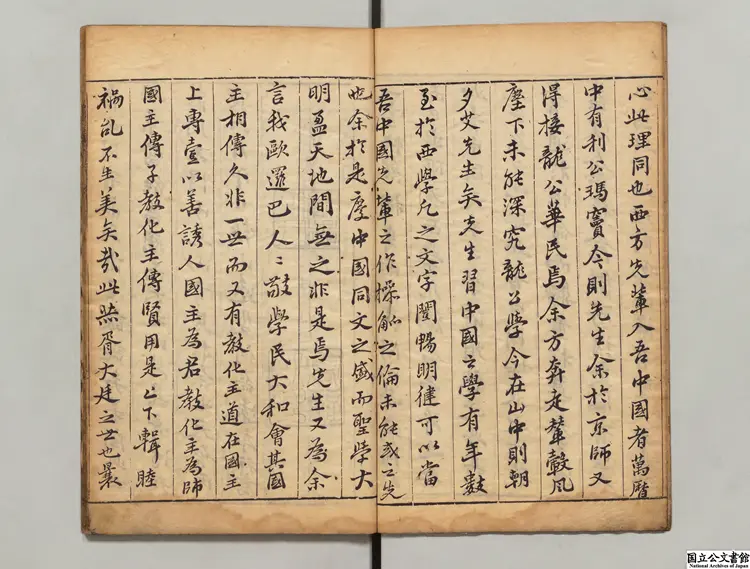 心此理同也西方先輩入吾中國者萬曆
中有利公瑪竇今則先生余於京師又
得接龍公華民焉余方奔走輦轂風
塵下未能深究龍公學今在山中則朝
夕艾先生矣先生習中國之學有年數
至於西學凡之文字闡暢明健可以當
吾中國先輩之作操觚之倫未能或之先
也余於是慶中國同文之盛而聖學大
明盈天地間無之非是焉先生又為余
言我歐邏巴人〻敬學民大和會其國
主相傳久非一世而又有教化主道在國主
上專壹以善誘人國主為君教化主為師
國主傳子教化主傳賢用是上下輯睦
禍亂不生美矣哉此煞胥大廷之世也曩
国立公文書館
National Archives of Japan